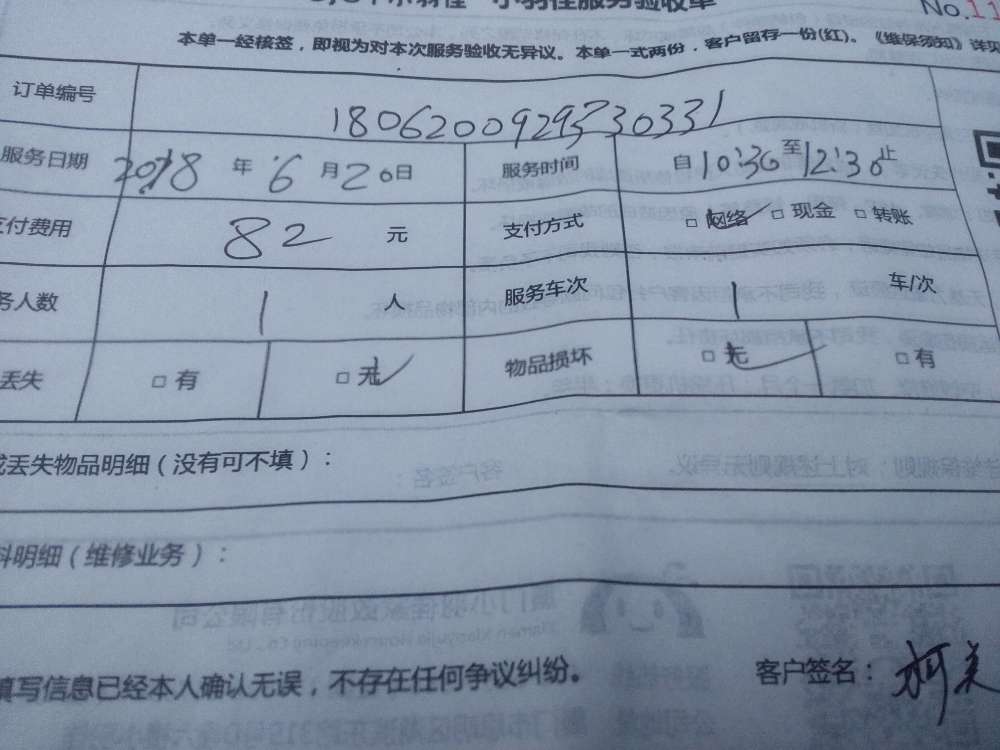 小羽佳服务验收单
No.11
本单一经核签，即视为对本次服务验收无异议。本单一式两份，客户留存一份(红)。《维保须知》详见
订单编号 180620092933033​1
服务日期 2018 年 6 月 20 日 服务时间 自 10:30 至 12:30 止
支付费用 82 元 支付方式 □ 网络 □ 现金 □ 转账
务人数 1 人 服务车次 1 车/次
丢失 □ 有 □ 无 物品损坏 □ 无 □ 有
丢失物品明细（没有可不填）：
料明细（维修业务）：
填写信息已经本人确认无误，不存在任何争议纠纷。 客户签名：柯美